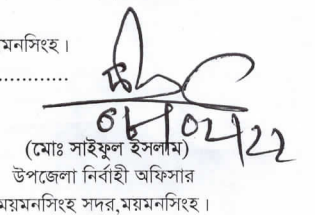 মনসিংহ।
....................
(মোঃ সাইফুল ইসলাম)
উপজেলা নির্বাহী অফিসার
ময়মনসিংহ সদর,ময়মনসিংহ।